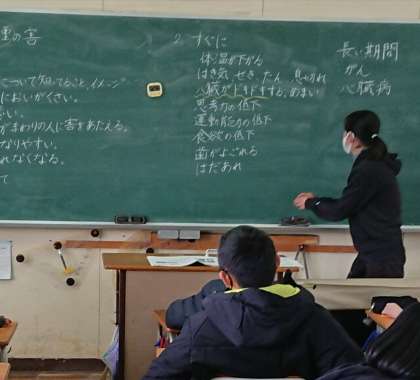 の害
について知ってること、イメージ
においがくさい。
がまわりの人に害をあたえる。
なりやすい。
れなくなる。
2. すぐに
体温が下がる
はき気、せき、たん、息切れ
心臓がドキドキする、めまい
思考力の低下
運動能力の低下
食欲の低下
歯がよごれる
はだあれ
長い期間
がん
心臓病